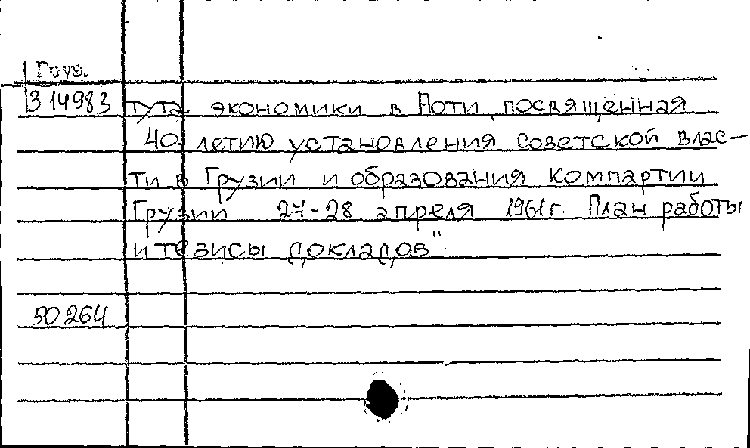 Груз.
314983 тута экономики в Поти, посвященная
40-летию установления советской влас-
ти в Грузии и образования компартии
Грузии 27-28 апреля 1961г. План работы
и тезисы докладов"
50264